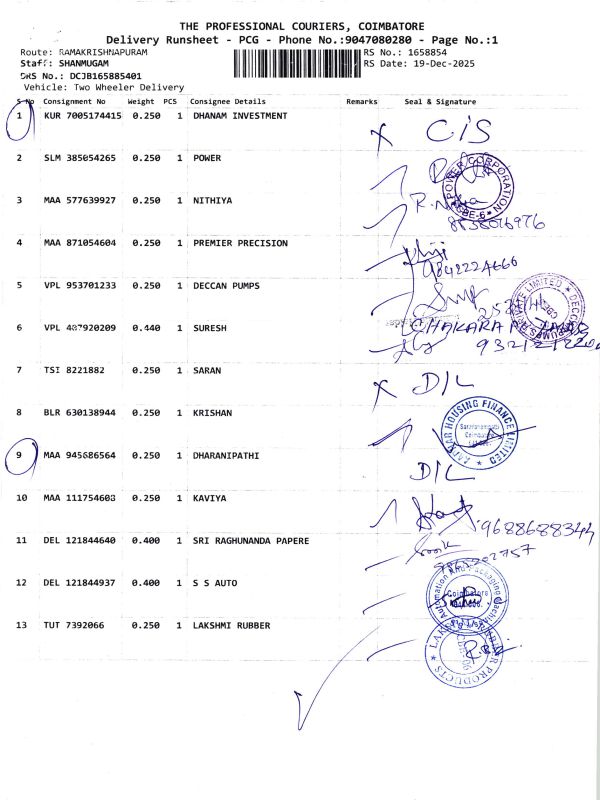 THE PROFESSIONAL COURIERS, COIMBATORE
Delivery Runsheet - PCG - Phone No.:9047080280 - Page No.:1
Route: RAMAKRISHNAPURAM RS No.: 1658854
Staff: SHANMUGAM RS Date: 19-Dec-2025
DRS No.: DCJB165885401
Vehicle: Two Wheeler Delivery
S No Consignment No Weight PCS Consignee Details Remarks Seal & Signature
1 KUR 7005174415 0.250 1 DHANAM INVESTMENT X C/S
2 SLM 385054265 0.250 1 POWER
POWER CORPORATION CBE-6
3 MAA 577639927 0.250 1 NITHIYA
4 MAA 871054604 0.250 1 PREMIER PRECISION
9842224666
5 VPL 953701233 0.250 1 DECCAN PUMPS
DECCAN PUMPS PRIVATE LIMITED
6 VPL 487920209 0.440 1 SURESH
7 TSI 8221882 0.250 1 SARAN X D/L
8 BLR 630138944 0.250 1 KRISHAN
HOUSING FINANCE LIMITED
9 MAA 945686564 0.250 1 DHARANIPATHI D/L
10 MAA 111754608 0.250 1 KAVIYA
9688688344
11 DEL 121844640 0.400 1 SRI RAGHUNANDA PAPERE
12 DEL 121844937 0.400 1 S S AUTO
Coimbatore
13 TUT 7392066 0.250 1 LAKSHMI RUBBER